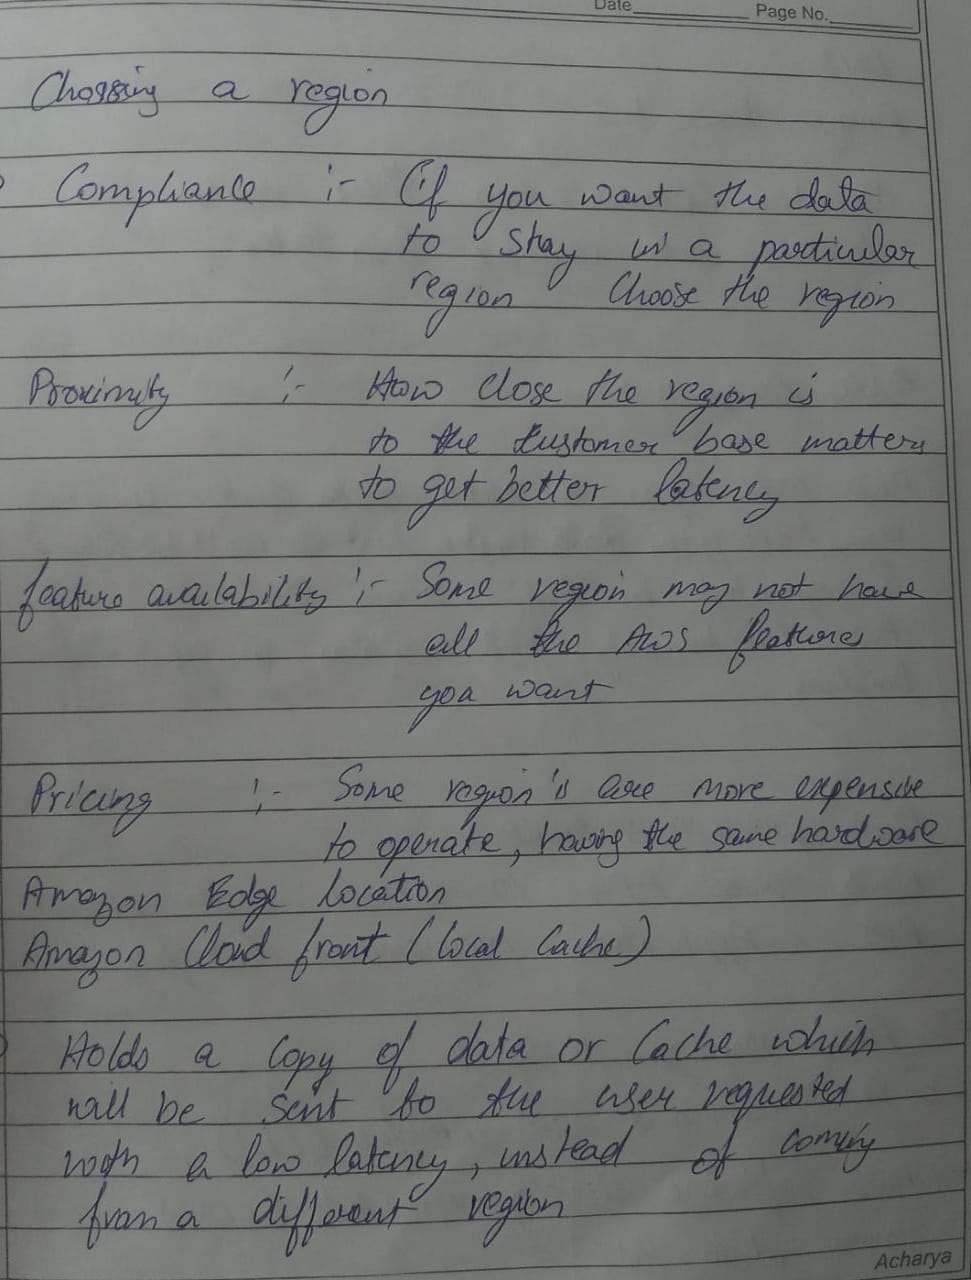 Date Page No.
Chossing a region
Compliance :- If you want the data
to stay in a particular
region Choose the region
Proximity :- How close the region is
to the customer base matters
to get better latency
feature availability :- Some region may not have
all the AWS features
you want
Pricing :- Some region's are more expensive
to operate, having the same hardware
Amazon Edge location
Amazon Cloud front (local Cache)
Holds a copy of data or Cache which
will be sent to the user requested
with a low latency, instead of coming
from a different region
Acharya